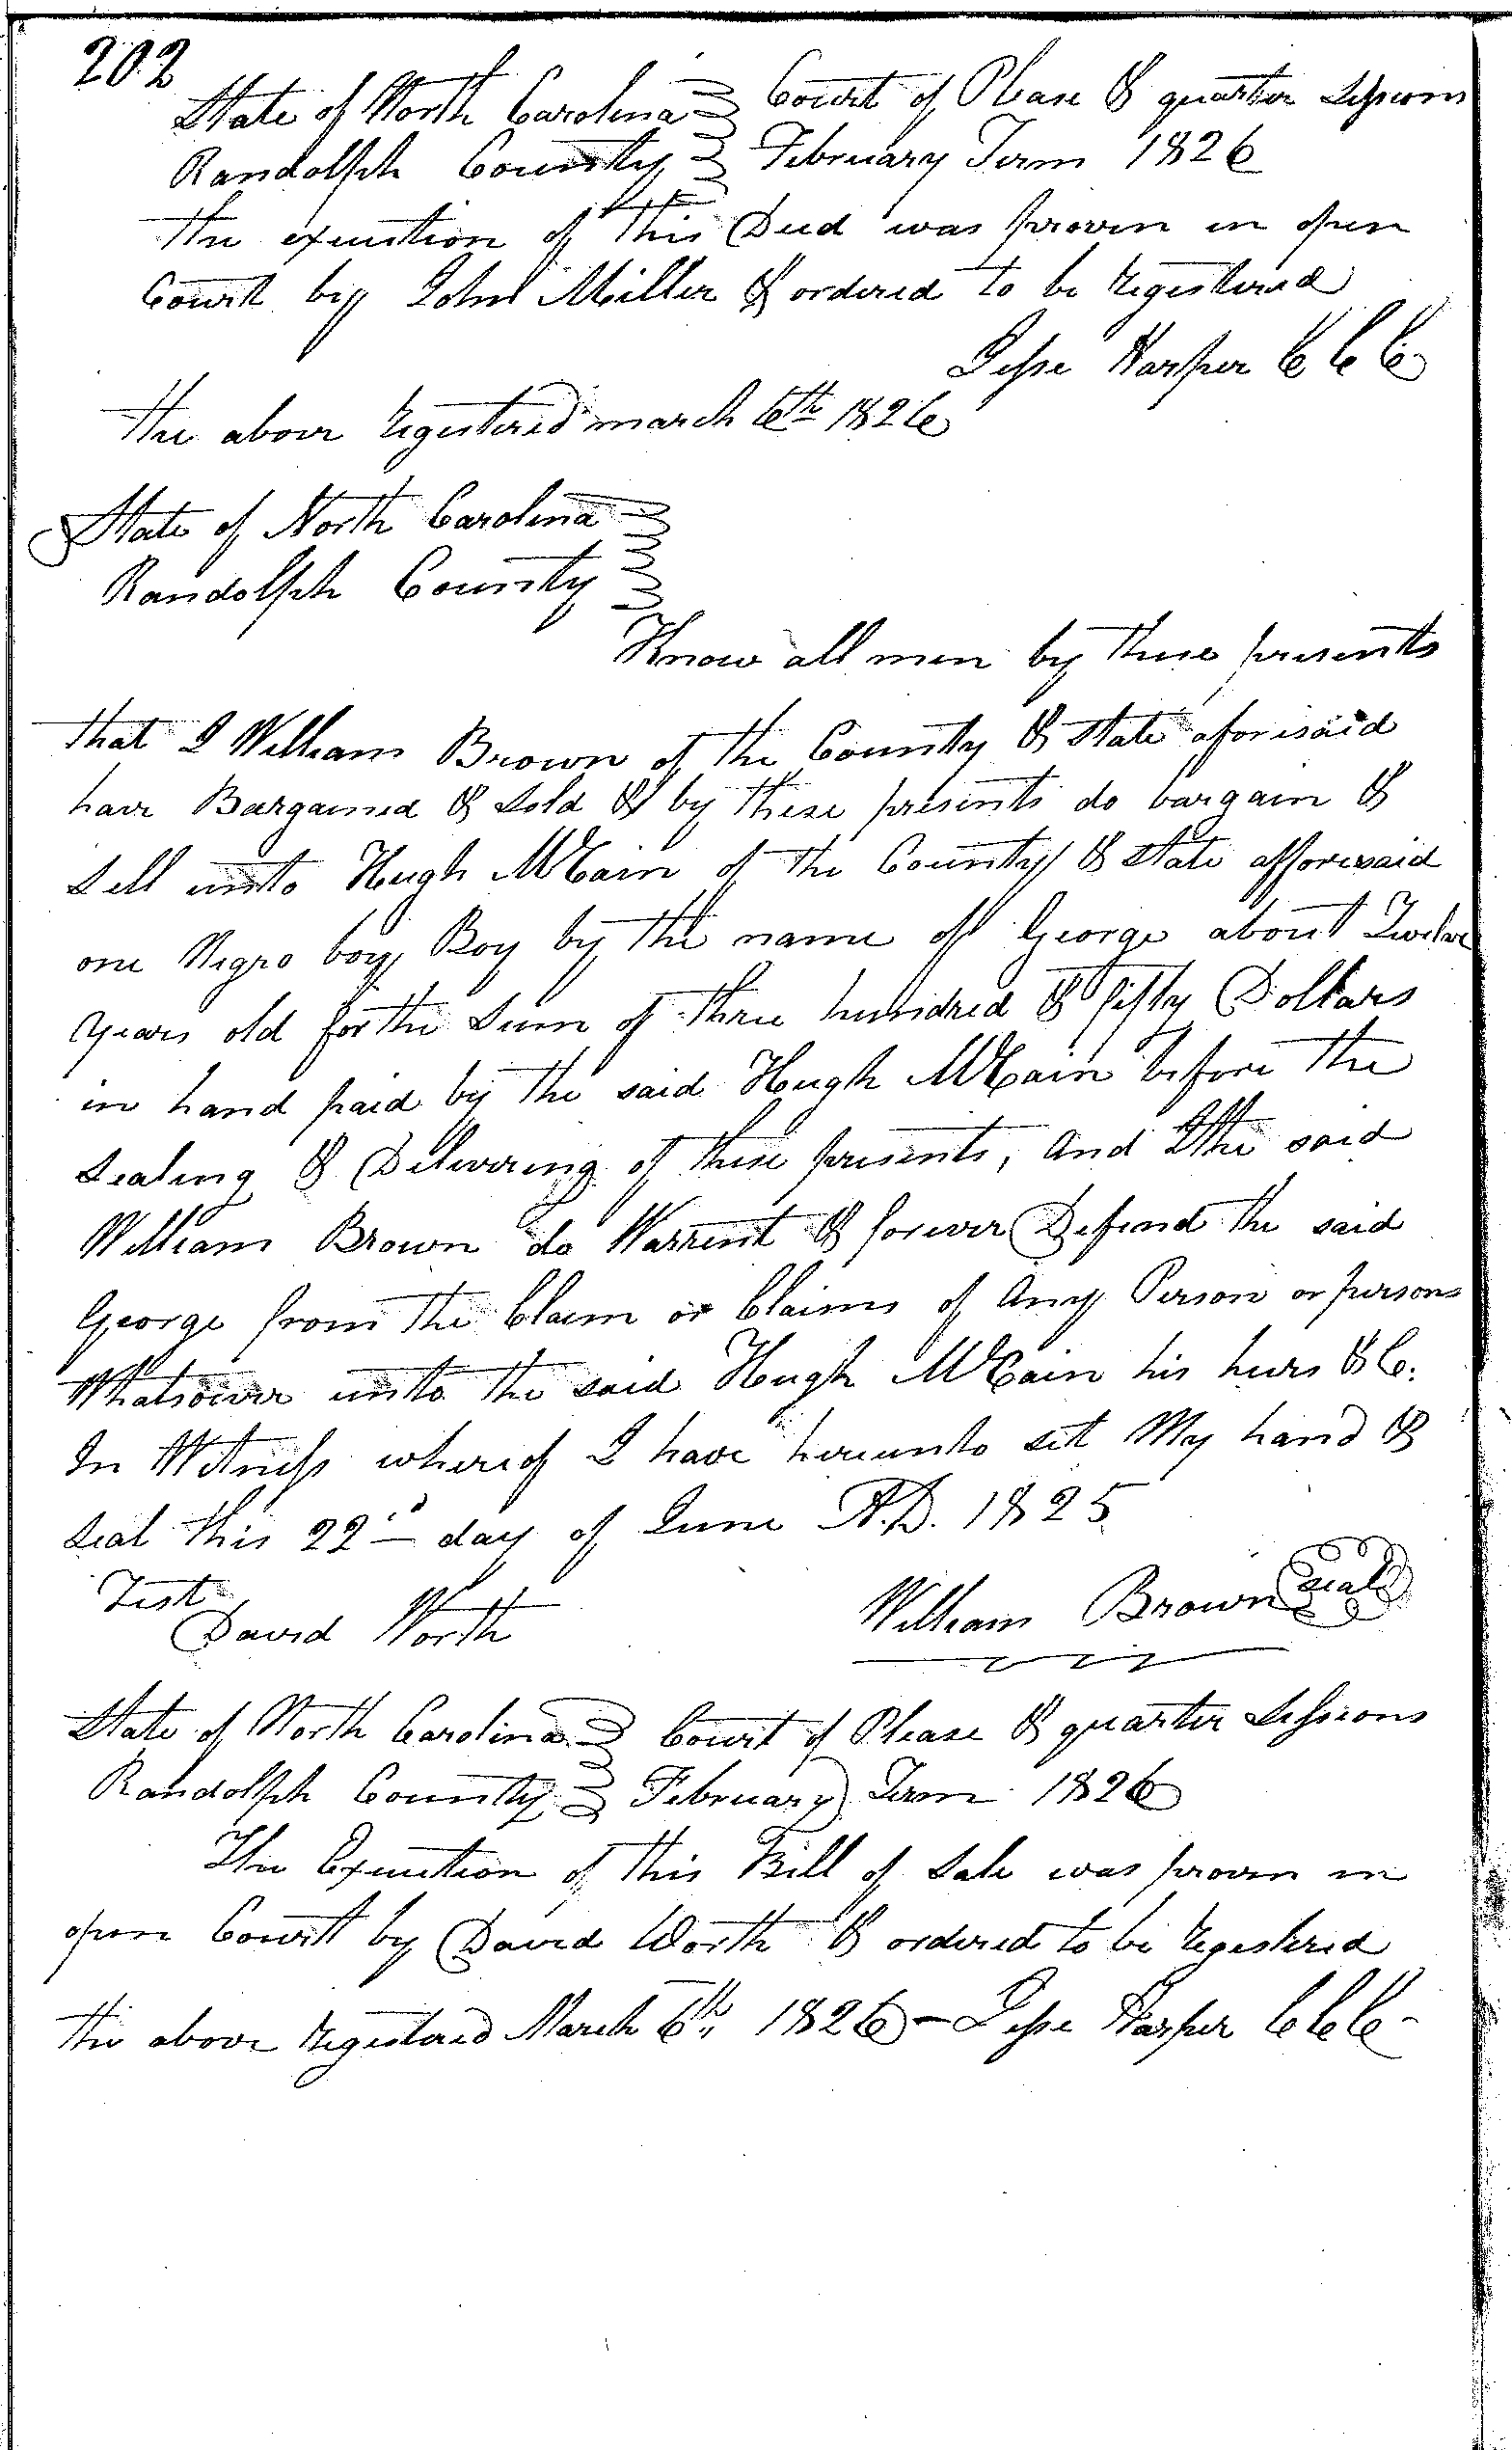 202
State of North Carolina } Court of Please & quarter Sessions
Randolph County } February Term 1826
The execution of this Deed was proven in open
Court by John Miller & ordered to be registered
Jesse Harper C C C
the above registered march 6th 1826
State of North Carolina }
Randolph County }
Know all men by these presents
that I William Brown of the County & State aforesaid
have Bargained & Sold & by these presents do bargain &
Sell unto Hugh McCain of the County & State afforesaid
one Negro boy Boy by the name of George about Twelve
years old for the Sum of three hundred & fifty Dollars
in hand paid by the said Hugh McCain before the
Sealing & Delivering of these presents, and I the said
William Brown do Warrent & forever Defend the said
George from the Claim or Claims of Any Person or persons
Whatsoever unto the said Hugh McCain his heirs &C.
In Witness whereof I have hereunto set My hand &
Seal this 22d day of June A.D. 1825
Test
David Worth William Brown seal
State of North Carolina } Court of Please & quarter Sessions
Randolph County } February Term 1826
The Execution of this Bill of Sale was proven in
open Court by David Worth & ordered to be registered
the above registered March 6th, 1826 - Jesse Harper C C C -